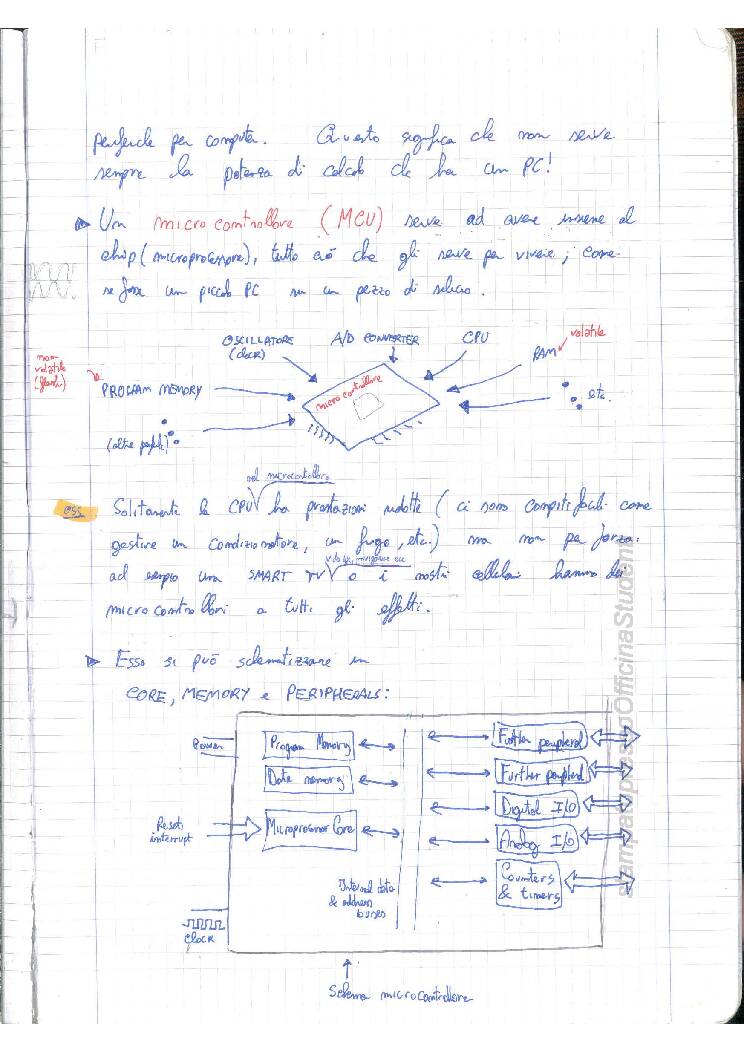 periferiche per computer. Questo significa che non serve
sempre la potenza di calcolo che ha un PC!
Un microcontrollore (MCU) serve ad avere insieme al
chip (microprocessore), tutto ciò che gli serve per vivere; come
se fosse un piccolo PC su un pezzo di silicio.
OSCILLATORE
(clock)
A/D CONVERTER
CPU
RAM
volatile
non
volatile
(flash)
PROGRAM MEMORY
microcontrollore
etc.
(altre perif.)
nel microcontrollore
ess. Solitamente la CPU ha prestazioni ridotte (ci sono compiti facili come
gestire un condizionatore, un frigo, etc.) ma non per forza:
ad esempio una SMART TV o i nostri cellulari hanno dei
microcontrollori a tutti gli effetti.
Esso si può schematizzare in
CORE, MEMORY e PERIPHERALS:
Power
Program Memory
Further peripheral
Data memory
Further peripheral
Digital I/O
Reset,
interrupt
Microprocessor Core
Analog I/O
Internal data
& address
buses
Counters
& timers
Clock
Schema microcontrollore
Stampa presso OfficinaStudenti